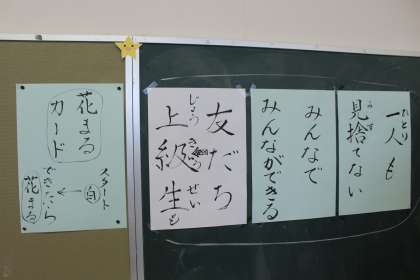 一人も
ひとり
見捨てない
みす
みんなで
みんなができる
友だち
上級生も
じょうきゅうせい
花まる
カード
スタート
白
できたら
花まる